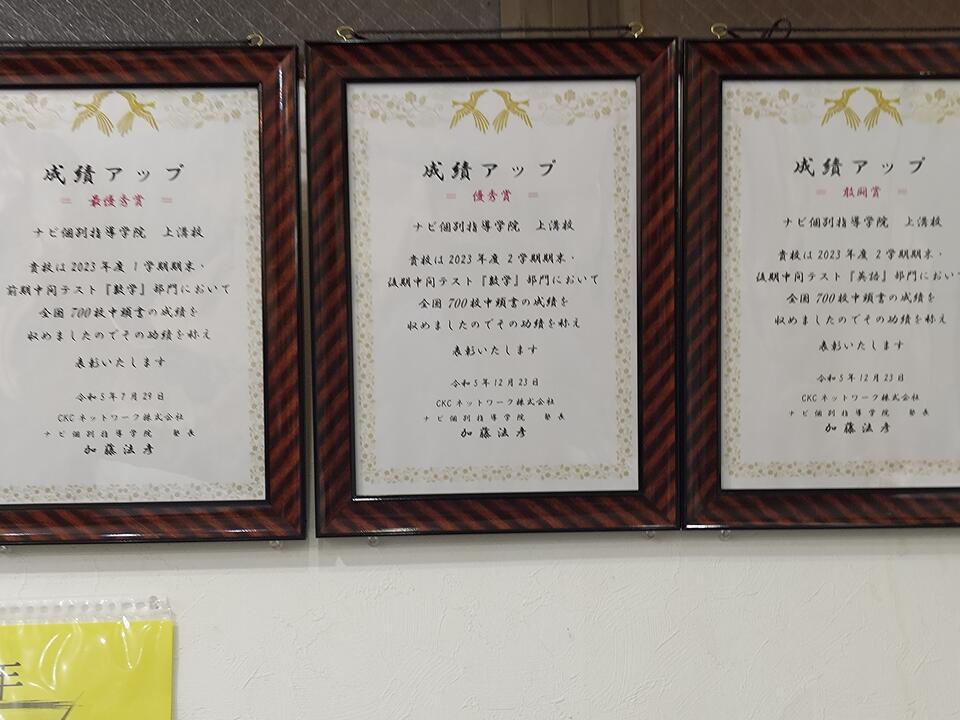 成績アップ
最優秀賞
ナビ個別指導学院 上溝校
貴校は2023年度 1学期期末・
前期中間テスト『数学』部門において
全国700校中頭書の成績を
収めましたのでその功績を称え
表彰いたします
令和5年7月29日
CKCネットワーク株式会社
ナビ個別指導学院 塾長
加藤法彦
成績アップ
優秀賞
ナビ個別指導学院 上溝校
貴校は2023年度 2学期期末・
後期中間テスト『数学』部門において
全国700校中頭書の成績を
収めましたのでその功績を称え
表彰いたします
令和5年12月23日
CKCネットワーク株式会社
ナビ個別指導学院 塾長
加藤法彦
成績アップ
敢闘賞
ナビ個別指導学院 上溝校
貴校は2023年度 2学期期末・
後期中間テスト『英語』部門において
全国700校中頭書の成績を
収めましたのでその功績を称え
表彰いたします
令和5年12月23日
CKCネットワーク株式会社
ナビ個別指導学院 塾長
加藤法彦
年